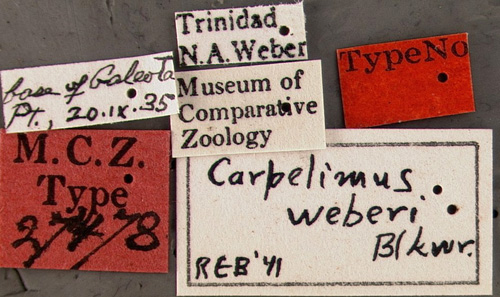 Trinidad
N.A. Weber
base of Galeota
Pt., 20.ix.35
Museum of
Comparative
Zoology
TypeNo
M.C.Z.
Type
27478
Carpelimus
weberi
Blkwr.
REB '41